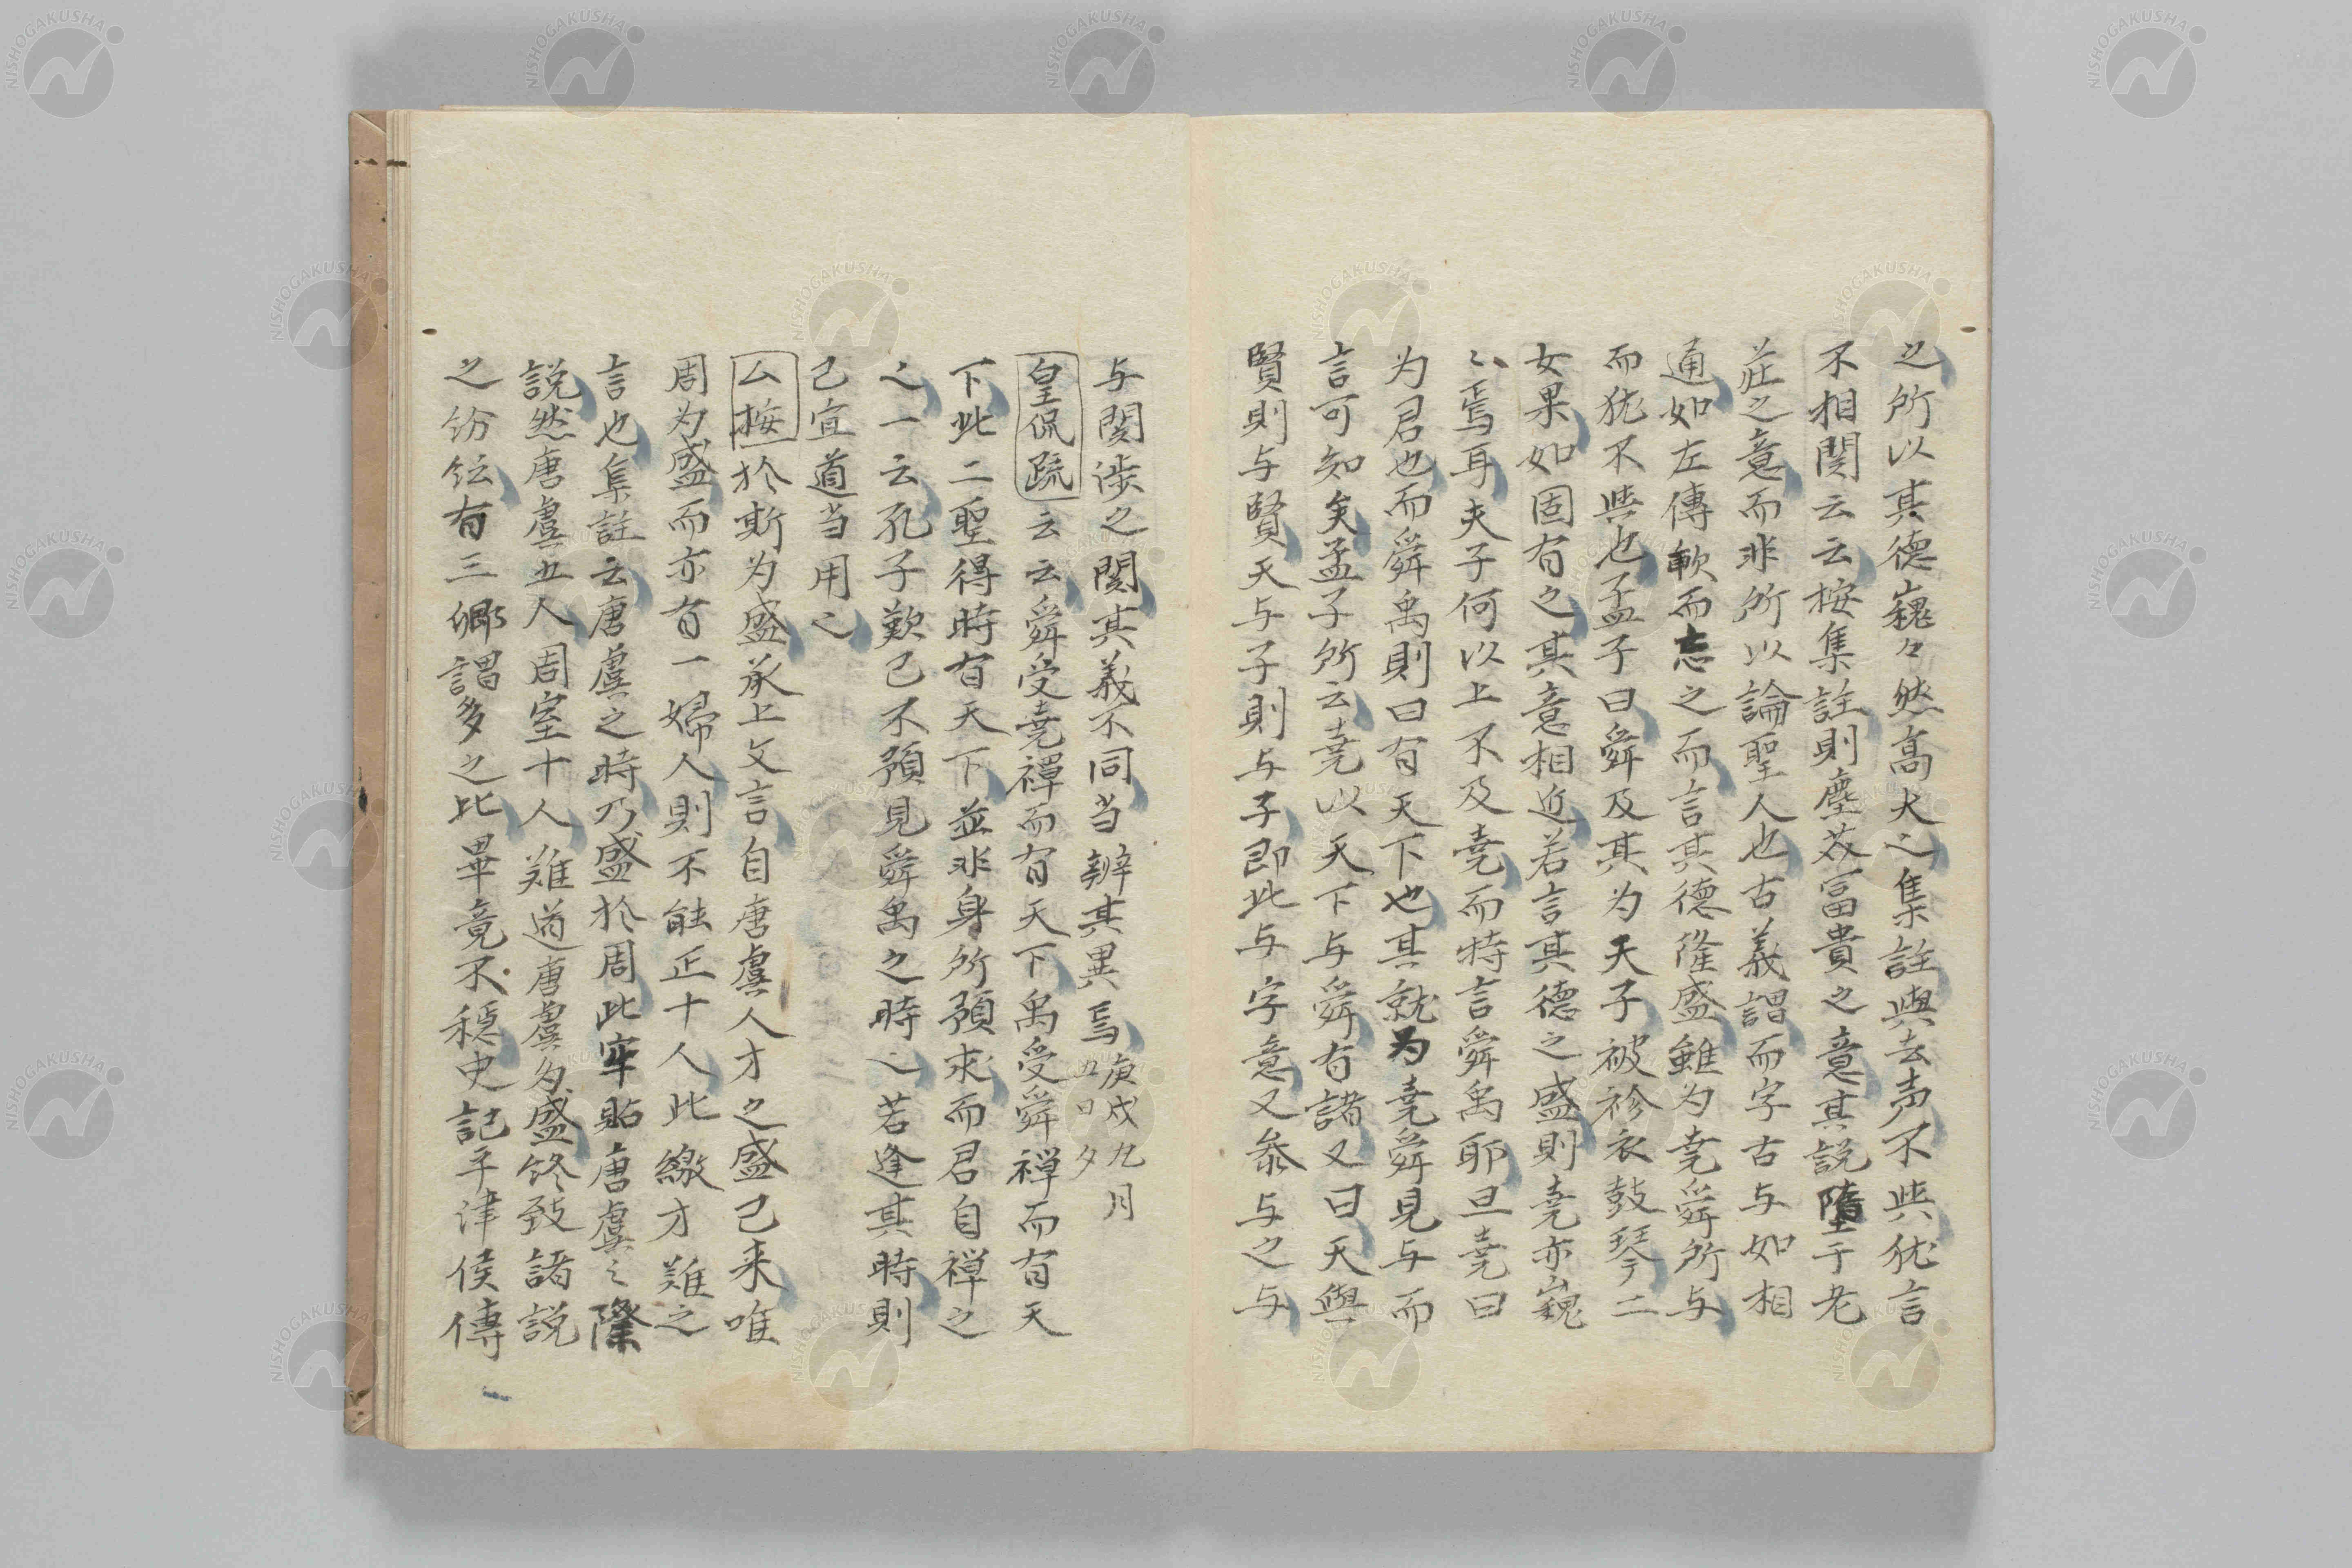 之所以其德巍々然高大也集註與去声不些猶言
不相関云云按集註則塵芥冨貴之意其説墮于老
莊之意而非所以論聖人也古義謂而字古与如相
通如左傳歃而忘之而言其德隆盛雖为尭舜所与
而犹不些也孟子曰舜及其为天子被袗衣鼓琴二
女果如固有之其意相近若言其德之盛則尭亦巍
々焉耳夫子何以上不及尭而特言舜禹耶且尭曰
为君也而舜禹則曰有天下也其就为尭舜見与而
言可知矣孟子所云尭以天下与舜有諸又曰天與
賢則与賢天与子則与子即此与字意又叅与之与
与関渉之関其義不同当辨其異焉庚戌九月
四日夕
皇侃䟽云云舜受尭禪而有天下禹受舜禅而有天
下此二聖得時有天下並非身所預求而君自禅之
之一云孔子歎己不預見舜禹之時之若逢其時則
己宜道当用之
厶按於斯为盛承上文言自唐虞人才之盛已来唯
周为盛而亦有一婦人則不能正十人此繳才難之
言也集註云唐虞之時乃盛於周此牢貼唐虞之際
説然唐虞五人周室十人難道唐虞为盛終致諸説
之紛紜有三卿謂多之比畢竟不穏史記平津侯傳